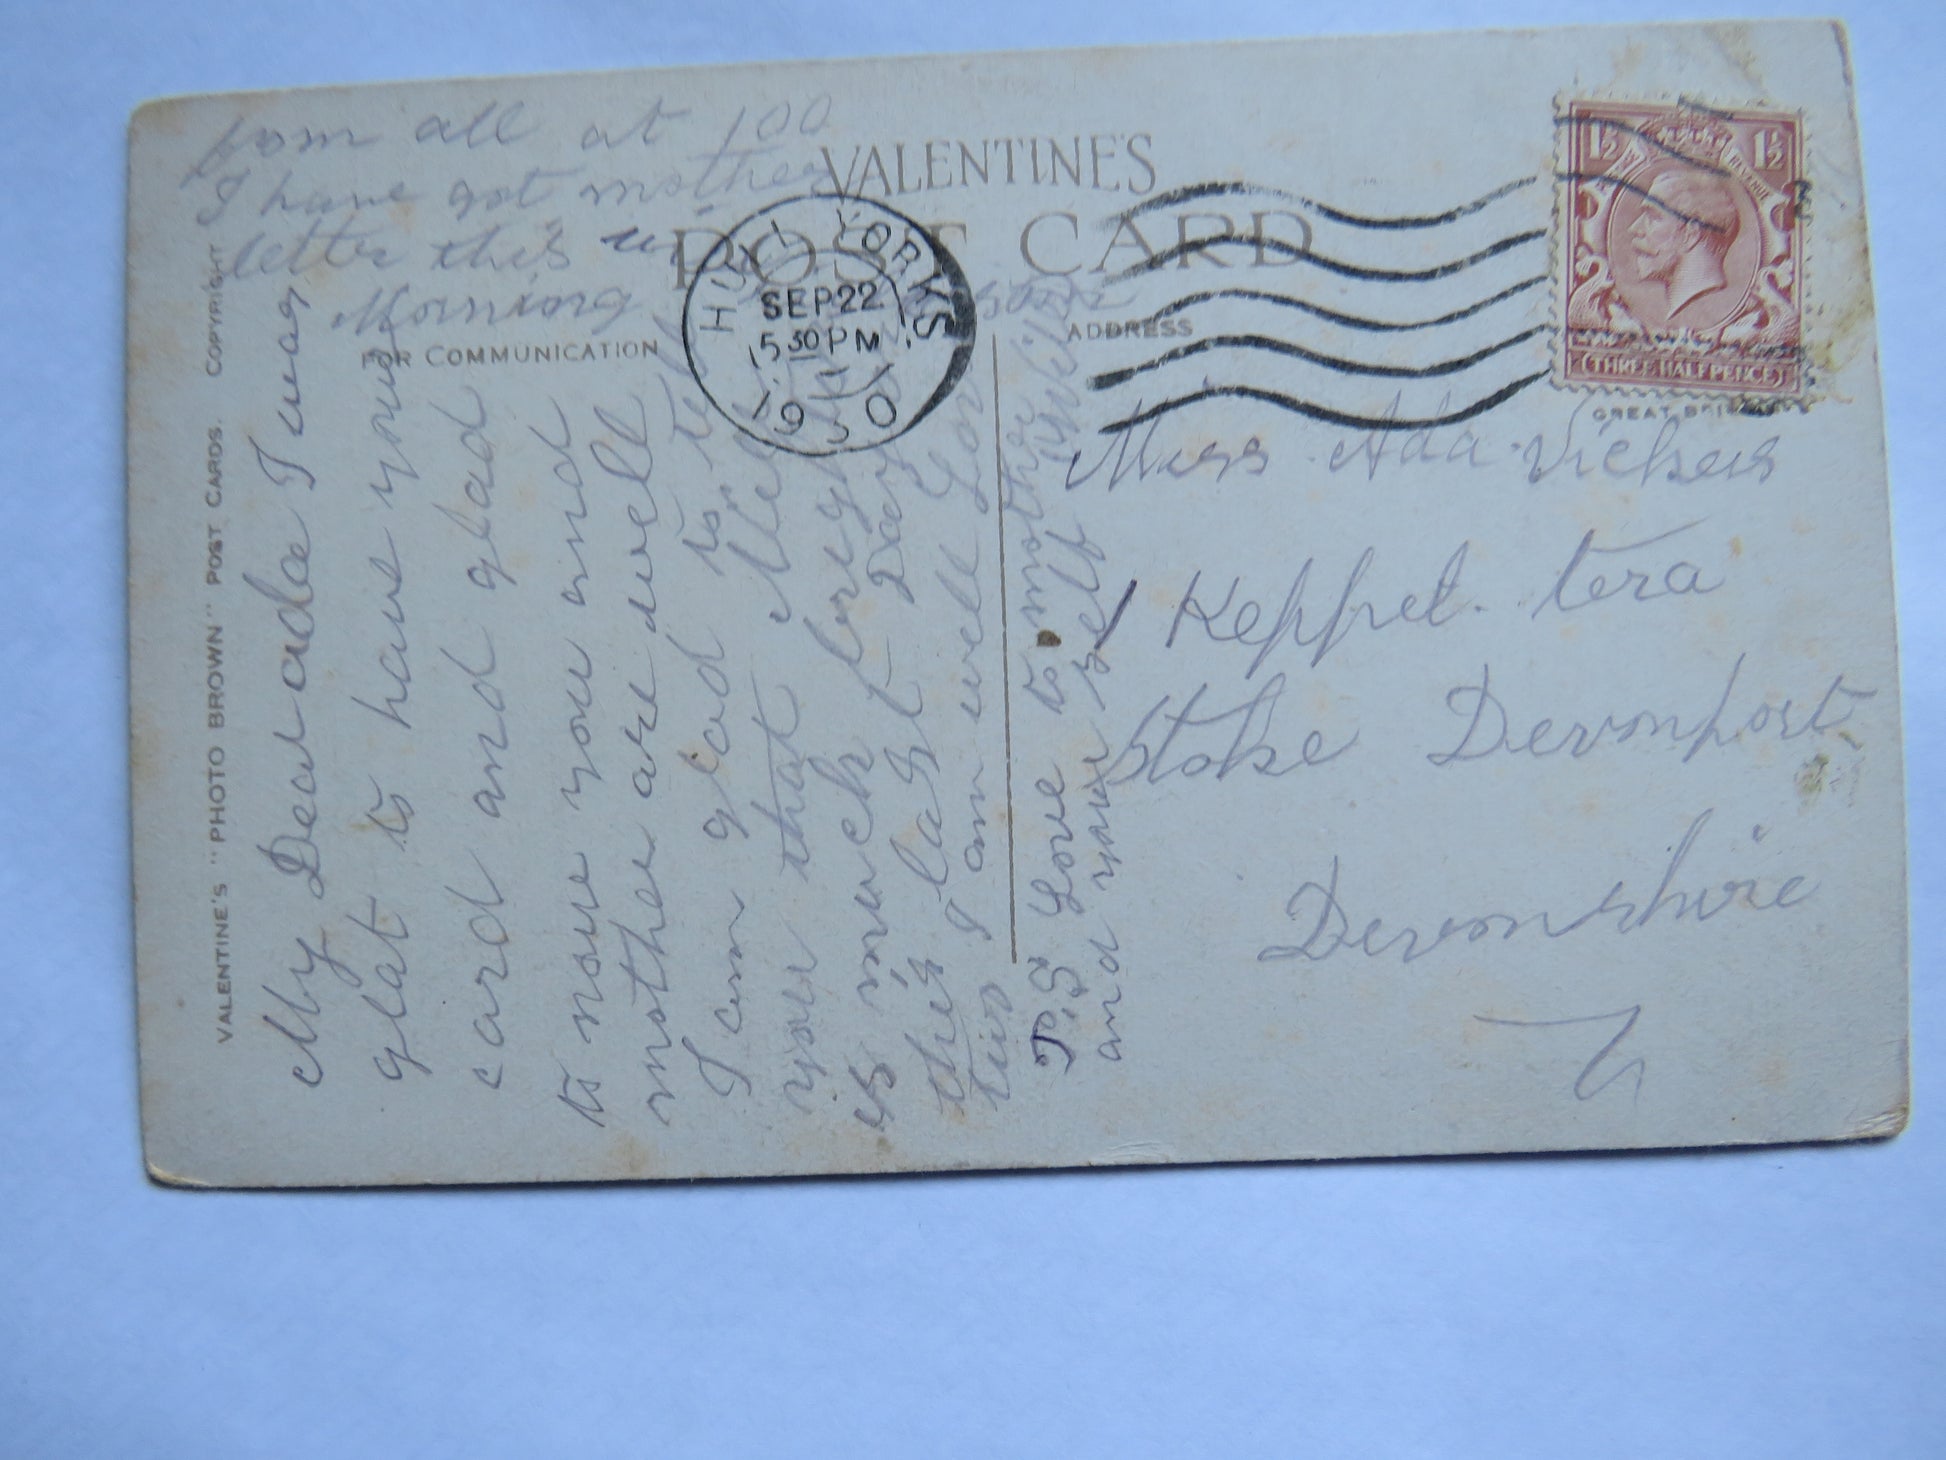 from all at 100
I have got mother
letter this
Morning
VALENTINE'S
POST CARD
FOR COMMUNICATION
ADDRESS
HULL YORKS.
SEP 22
5 30 PM
1930
1½ 1½
(THREE HALFPENCE)
GREAT BRITAIN
VALENTINE'S "PHOTO BROWN" POST CARDS. COPYRIGHT
My Dear ada I was
glat to have your
card and glad
to now you and
mother are well
I am glad to tell
you that
is much
this last Day
I am well
love to mother
and your self
Miss Ada Vickers
Keppel tera
Stoke Devonport
Devonshire